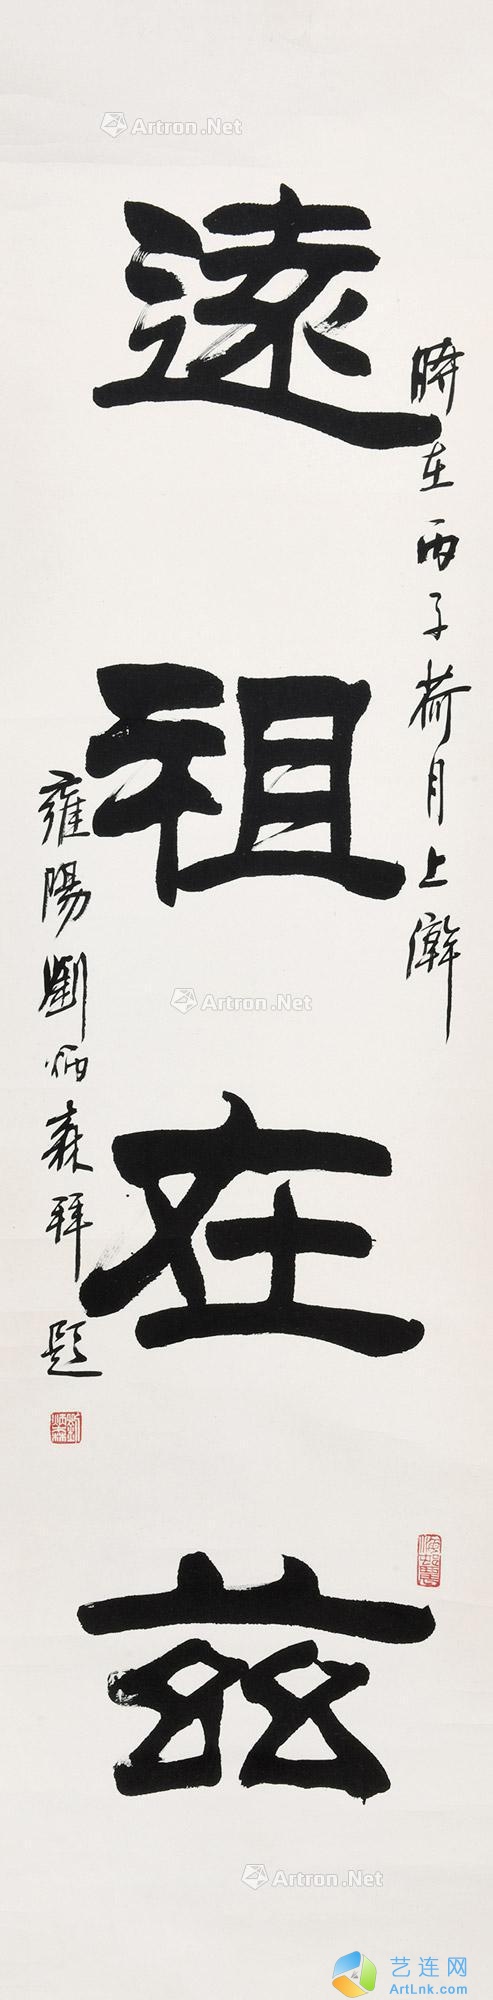 Artron.Net
時在丙子荷月上澣
遠祖在茲
雍陽劉炳森拜題
劉炳森
Artron.Net
Artron.Net
艺连网
ArtLnk.com